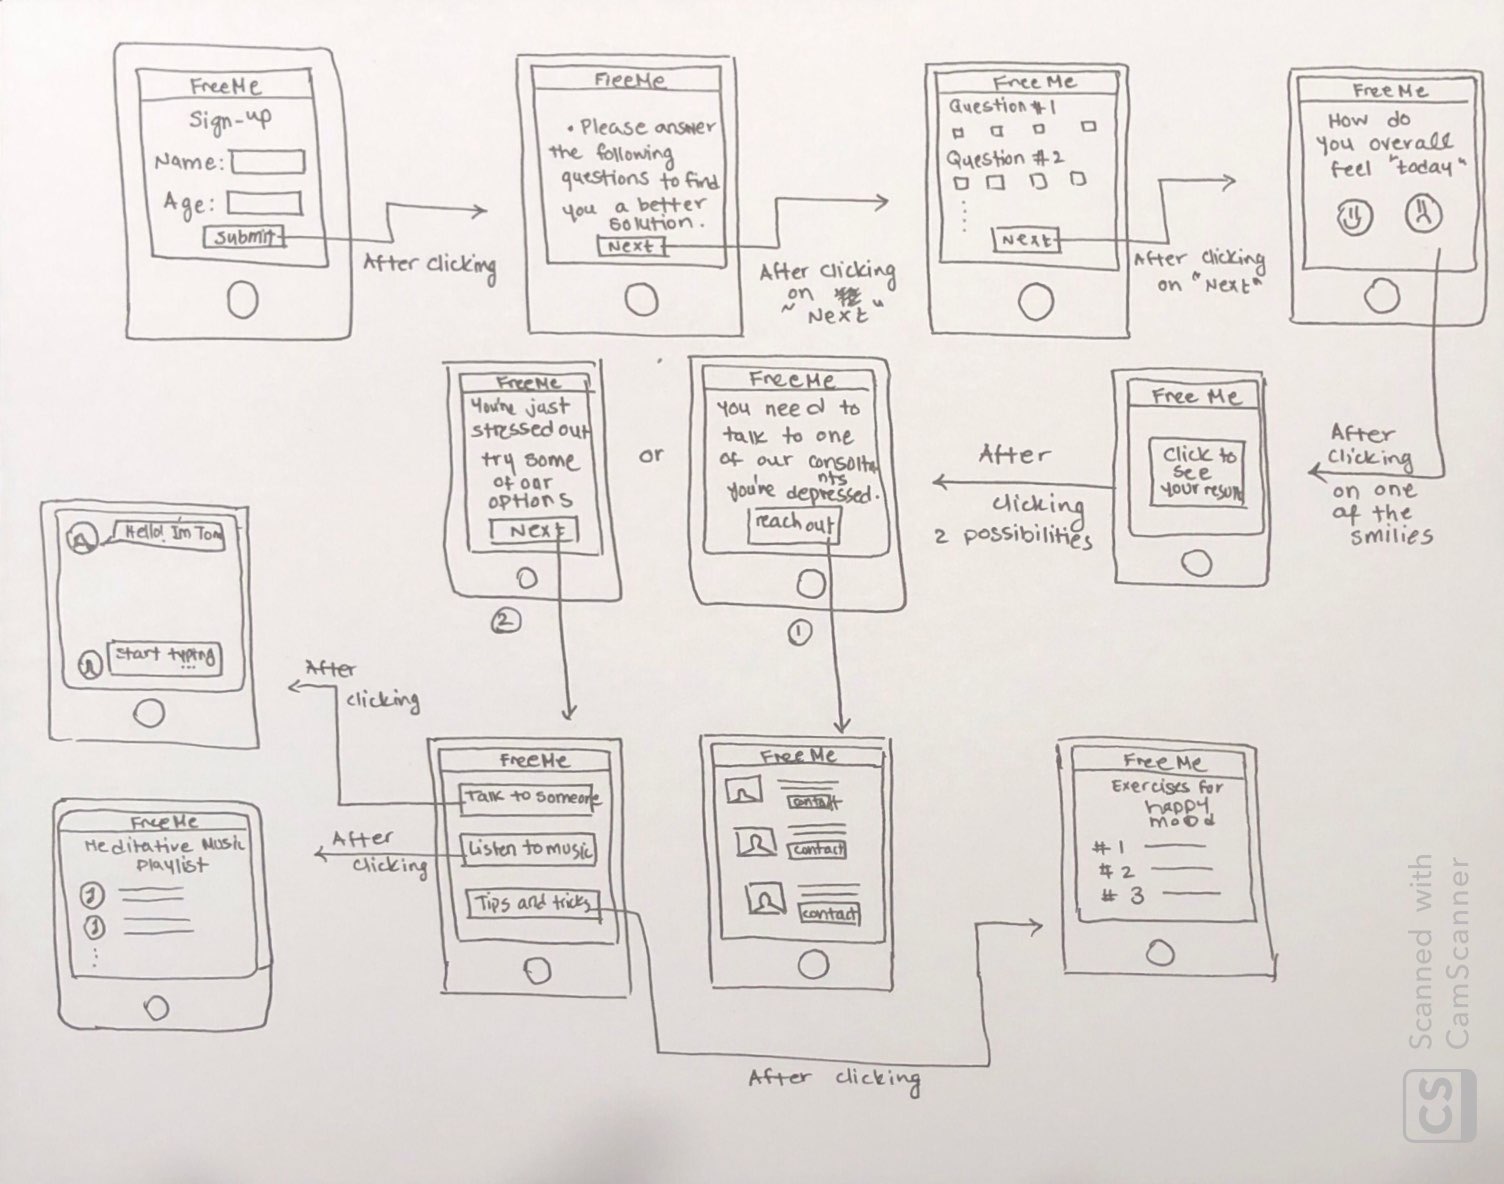 FreeMe
Sign-up
Name:
Age:
Submit
After clicking
FreeMe
• Please answer
the following
questions to find
you a better
solution.
Next
After clicking
on
"Next"
Free Me
Question #1
Question #2
Next
After clicking
on "Next"
Free Me
How do
you overall
feel "today"
After
clicking
on one
of the
smilies
Free Me
Click to
see
your result
After
clicking
2 possibilities
FreeMe
You need to
talk to one
of our consolta
nts
you're depressed.
reach out
1
or
FreeMe
You're just
stressed out
try some
of our
options
Next
2
Hello! I'm Tom
Start typing
...
After
clicking
FreeMe
Talk to someone
Listen to music
Tips and tricks
After
clicking
FreeMe
Meditative Music
Playlist
Free Me
contact
contact
contact
After clicking
Free Me
Exercises for
happy
mood
# 1
# 2
# 3
Scanned with
CamScanner
CS